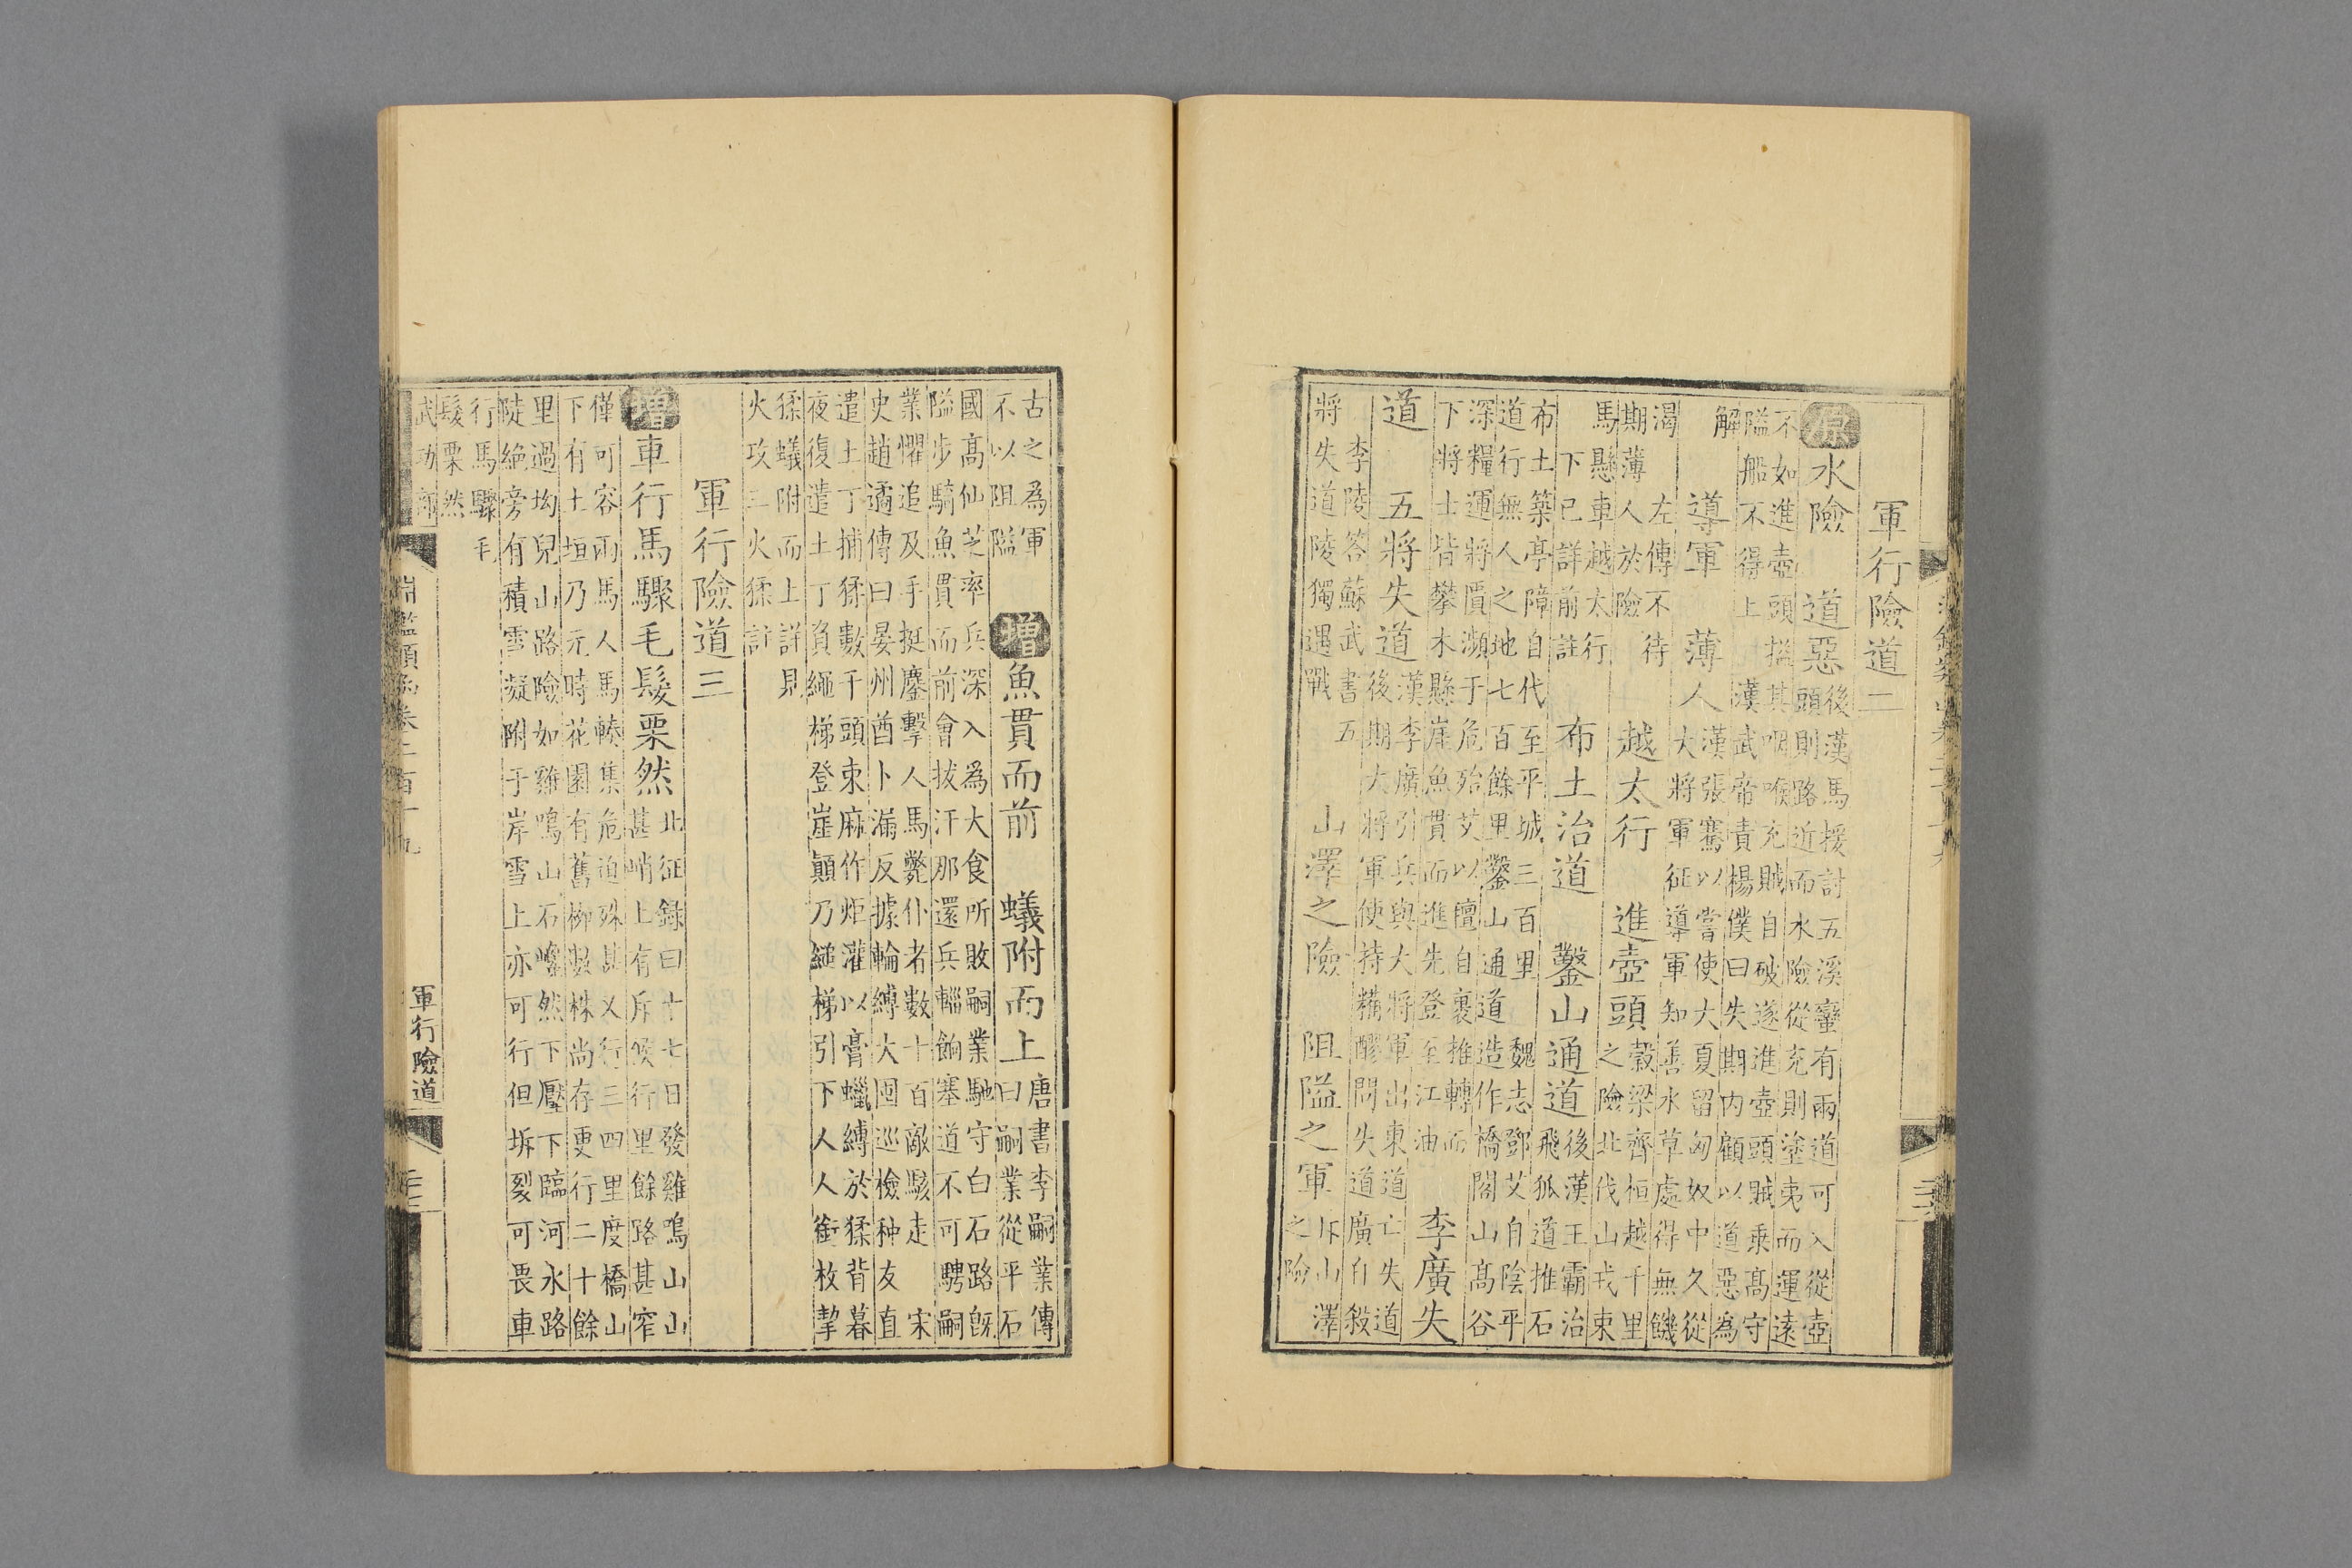 軍行險道二
原水險　道惡
後漢馬援討五溪蠻有兩道可入從壺
頭則路近而水險從充則塗夷而運遠
不如進壺頭搤其咽喉充賊自破遂進壺頭賊乘高守
隘船不得上　漢武帝責楊僕曰失期內顧以道惡為
解
導軍　薄人
漢張騫以嘗使大夏留匈奴中久從
大將軍征導軍知善水草處得無饑
渴　左傳不待
期薄人於險
越太行　進壺頭
穀梁齊桓越千里
之險北伐山戎束
馬懸車越太行
下已詳前註
布土治道　鑿山通道
後漢王霸治
飛狐道推石
布土築亭障自代至平城三百里　魏志鄧艾自陰平
道行無人之地七百餘里鑿山通道造作橋閣山高谷
深糧運將匱瀕于危殆艾以氊自裹推轉而
下將士皆攀木懸崖魚貫而進先登至江油
李廣失
道　五將失道
漢李廣引兵與大將軍出東道亡失道
後期大將軍使持糒醪問失道廣自殺
李陵答蘇武書五
將失道陵獨遇戰
山澤之險　阻隘之軍
斥山澤
之險
古之為軍
不以阻隘
增魚貫而前　蟻附而上
唐書李嗣業傳
曰嗣業從平石
國高仙芝率兵深入為大食所敗嗣業馳守白石路旣
隘步騎魚貫而前會拔汗那還兵輜餉塞道不可騁嗣
業懼追及手挺鏖擊人馬斃仆者數十百敵駭走　宋
史趙遹傳曰晏州酋卜漏反據輪縛大囤巡檢种友直
遣土丁捕猱數千頭束麻作炬灌以膏蠟縛於猱背暮
夜復遣土丁負繩梯登崖顛乃縋梯引下人人銜枚挈
猱蟻附而上詳見
火攻三火猱註
軍行險道三
增車行馬驟毛髮栗然
北征錄曰十七日發雞鳴山山
甚峭上有斥候行里餘路甚窄
僅可容兩馬人馬轃集危迫殊甚又行三四里度橋山
下有土垣乃元時花園有舊柳數株尚存更行二十餘
里過坳兒山路險如雞鳴山石巉然下壓下臨河水路
陡絕旁有積雪凝附于岸雪上亦可行但坼裂可畏車
行馬驟毛
髮栗然
武功部
淵鑑類函卷二百十九
軍行險道